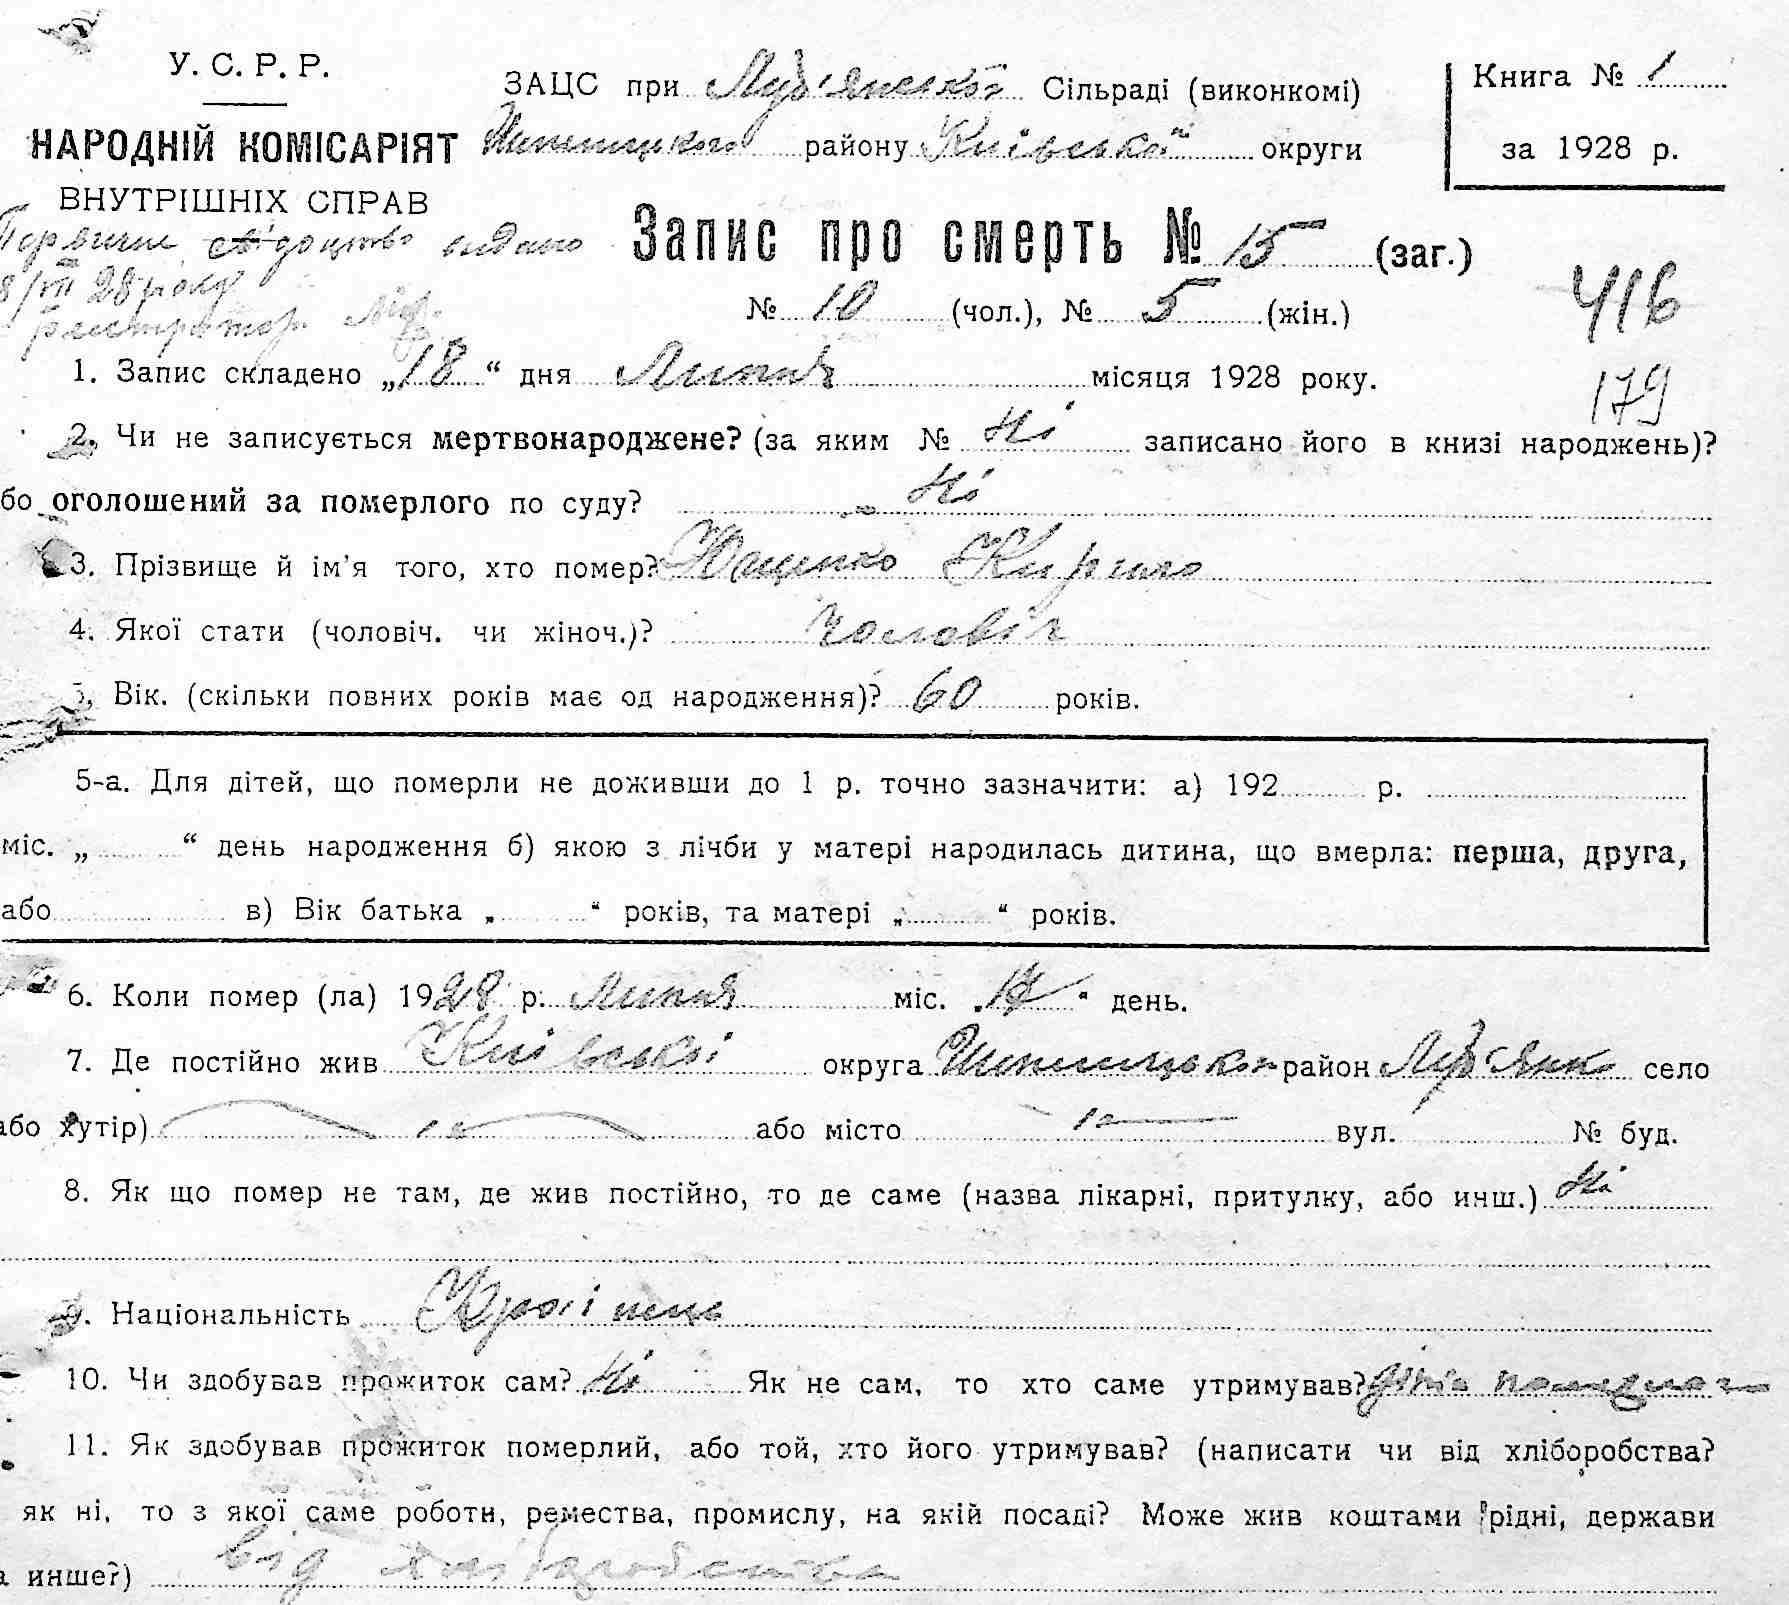 У. С. Р. Р.
НАРОДНІЙ КОМІСАРІЯТ
ВНУТРІШНІХ СПРАВ
ЗАЦС при Луб'янської Сільраді (виконкомі)
району Київської округи
Книга № 1
за 1928 р.
свідоцтво видано
8/VII 28 року
Реєстратор
Запис про смерть № 15 (заг.)
№ 10 (чол.), № 5 (жін.)
416
179
1. Запис складено „18“ дня Липня місяця 1928 року.
2. Чи не записується мертвонароджене? (за яким № Ні записано його в книзі народжень)?
бо оголошений за померлого по суду? Ні
3. Прізвище й ім'я того, хто помер? Ющенко Кирило
4. Якої стати (чоловіч. чи жіноч.)? чоловіч
5. Вік. (скільки повних років має од народження)? 60 років.
5-а. Для дітей, що померли не доживши до 1 р. точно зазначити: а) 192 р.
міс. „ “ день народження б) якою з лічби у матері народилась дитина, що вмерла: перша, друга,
або в) Вік батька „ “ років, та матері „ “ років.
6. Коли помер (ла) 1928 р. Липня міс. „17“ день.
7. Де постійно жив Київської округа район Луб'янка село
або хутір) або місто вул. № буд.
8. Як що помер не там, де жив постійно, то де саме (назва лікарні, притулку, або инш.) Ні
9. Національність Українець
10. Чи здобував прожиток сам? Ні Як не сам, то хто саме утримував?
11. Як здобував прожиток померлий, або той, хто його утримував? (написати чи від хліборобства?
як ні, то з якої саме роботи, ремества, промислу, на якій посаді? Може жив коштами рідні, держави
а инше?) від хліборобства